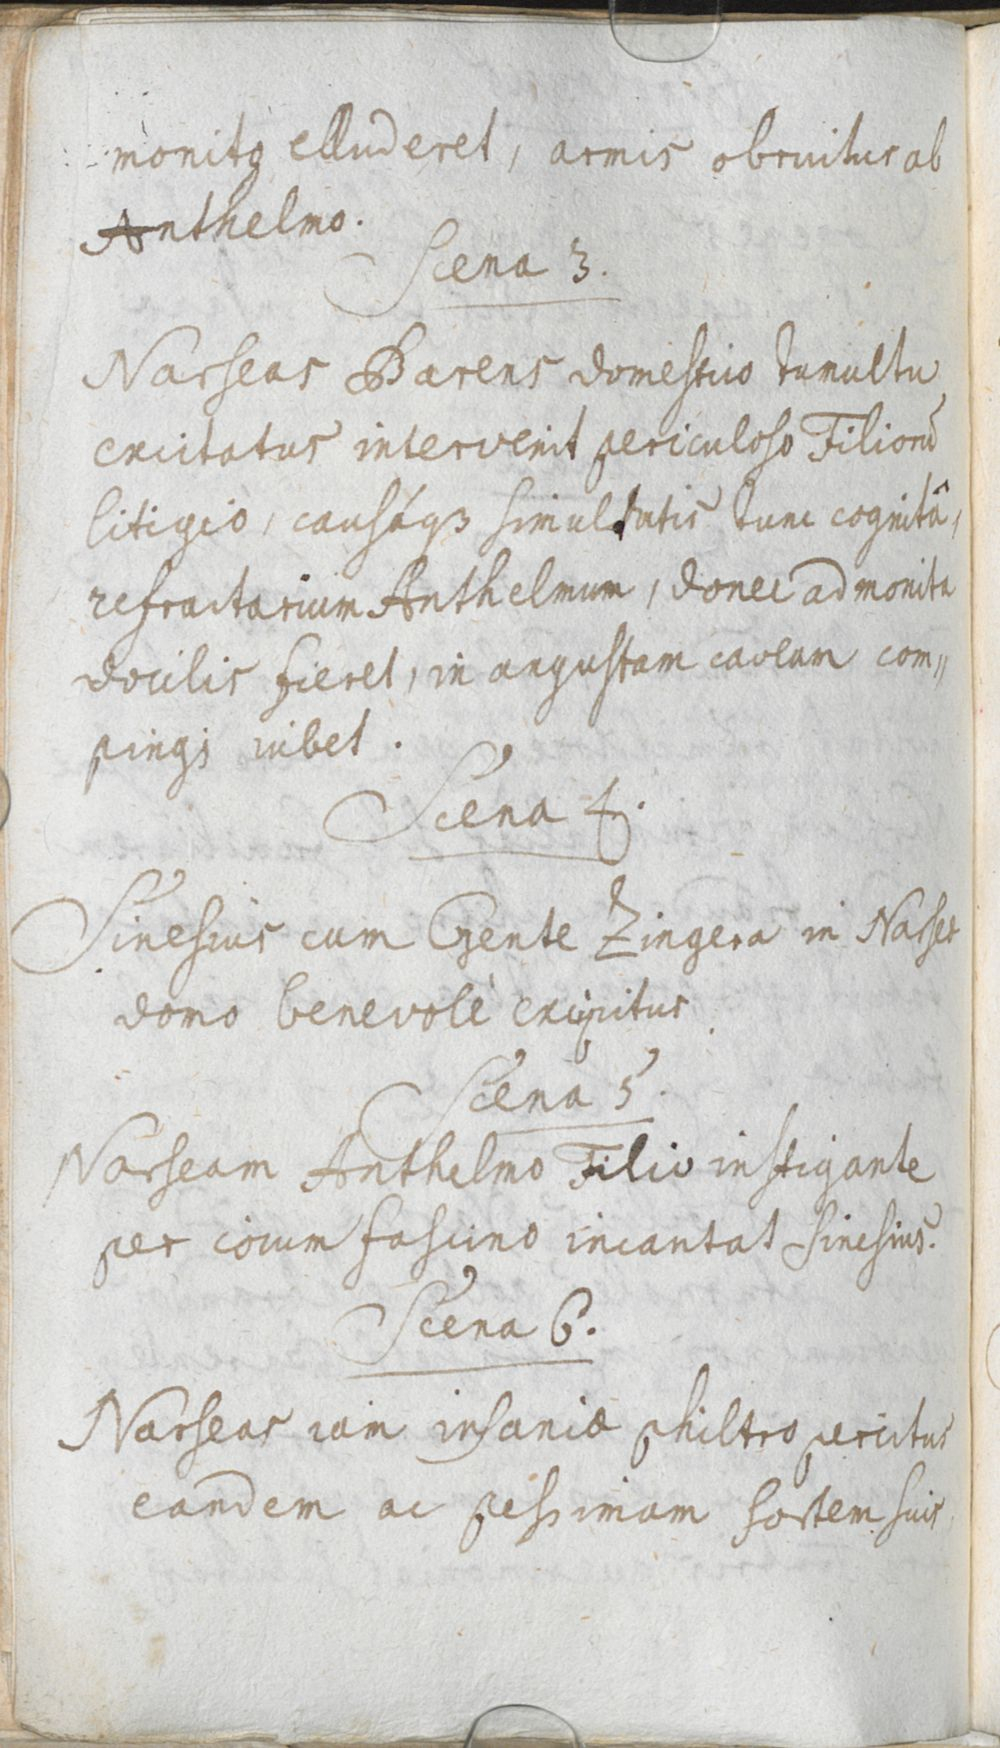 monita elluderet, armis obruitur ab
Anthelmo.
Scena 3.
Narseas Parens domestico tumultu
excitatus intervenit periculoso Filiorũ
litigio, causáqꝫ simultatis tunc cognitâ,
refractarium Anthelmum, donec admonita
docilis fieret, in angustam caveam com„
pingi iubet.
Scena 4.
Sinesius cum Gente Zingera in Narseæ
domo benevolè excipitur.
Scena 5.
Narseam Anthelmo Filio instigante
per iocum fascino incantat Sinesius.
Scena 6.
Narseas iam insaniæ philtro percitus
eandem ac pessimam sortem suis